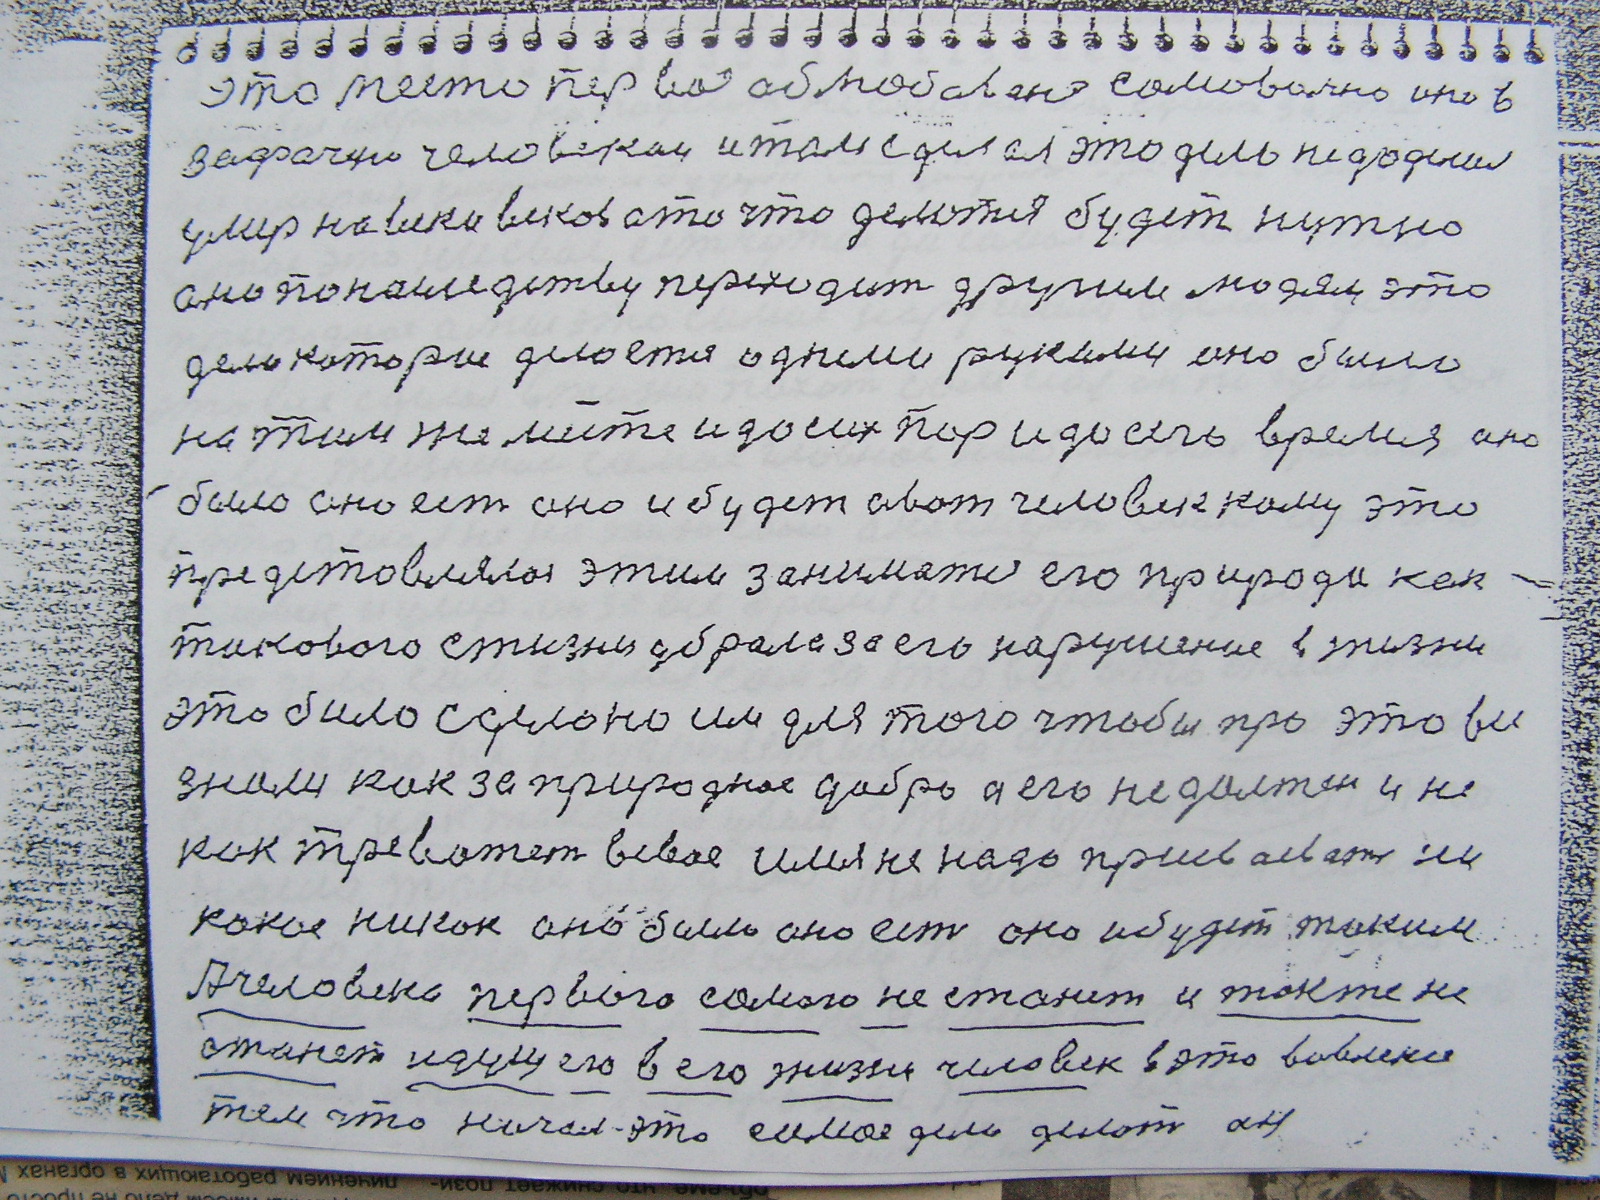 это место перво облюбавано самовольно оно в
задрачую человеком и там сделал это дело недоделал
умир навики виков а то что делотия будет нужно
оно по наследству переходит другим людям это
дело которые делается одними руками оно было
на тим же мите и до сих пор и до сего время оно
было оно ест оно и будет а вот человек кому это
представлялос этим заниматс его природа как
такового с жизни убрала за его нарушение в жизни
это было сделоно им для того чтобы про это ви
знали как за природное добро а его не должен и не
как тревожет всвое имя не надо присваеват ни
какое никак оно было оно ест оно и будет таким
А человека первого самого не станет и также не
станет идущего в его жизни человек в это вовлеке
тем что начал это самое дело делат он
пичением работающих в органах